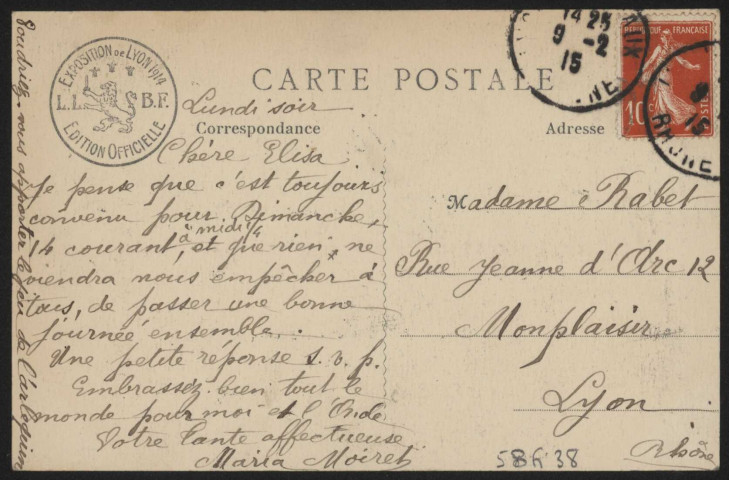 EXPOSITION DE LYON 1914
L.L. B.F.
EDITION OFFICIELLE
CARTE POSTALE
Correspondance
Adresse
Lundi soir
Chère Elisa
Je pense que c'est toujours
convenu pour Dimanche,
14 courant, à midi ¼ et que rien ne
viendra nous empêcher à
tous, de passer une bonne
journée ensemble.
Une petite réponse s.v.p.
Embrassez bien tout le
monde pour moi et l'Oncle
Votre tante affectueuse
Maria Moiret
Voudriez-vous apporter le jeu de l'arlequin
Madame Rabet
Rue Jeanne d'Arc 12
Monplaisir
Lyon
Rhône
14 25
9 -2
15
REPUBLIQUE FRANÇAISE
10
POSTES
15
RHONE
58 38